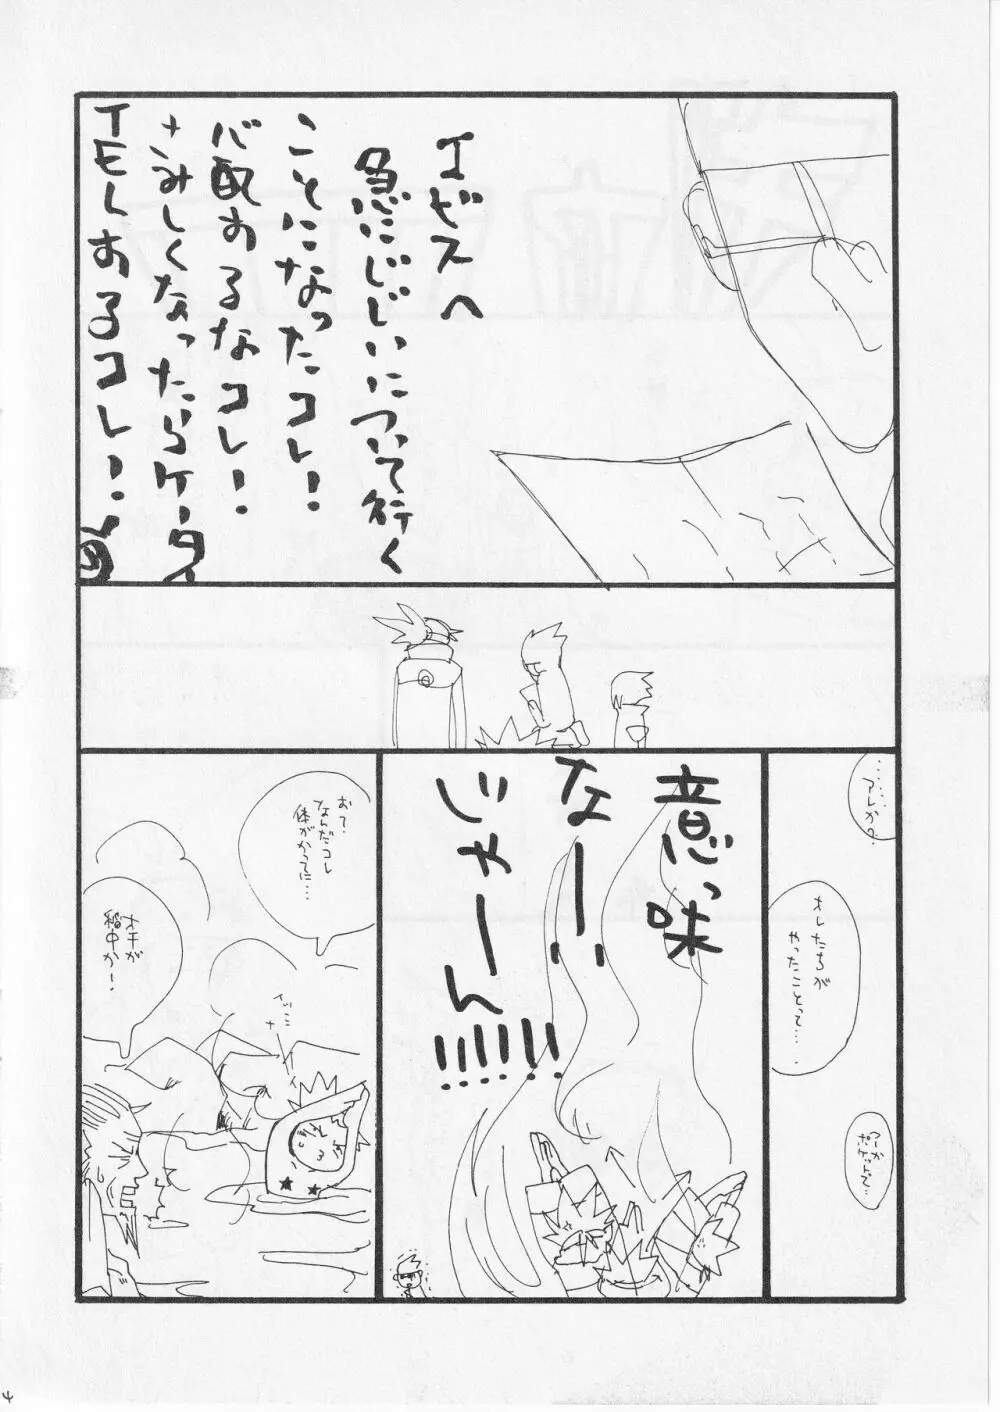 エビスへ
急にじじいについて行く
ことになったコレ!
心配するなコレ!
さみしくなったらケータイ
TELするコレ!
……アレか?
オレたちが
やったことって…
つーか
ポケットて…
意っ味
なーー…
じゃーーん!!!!!!
あて?
なんだコレ
体がかってに…
オチが
稲中か!
4